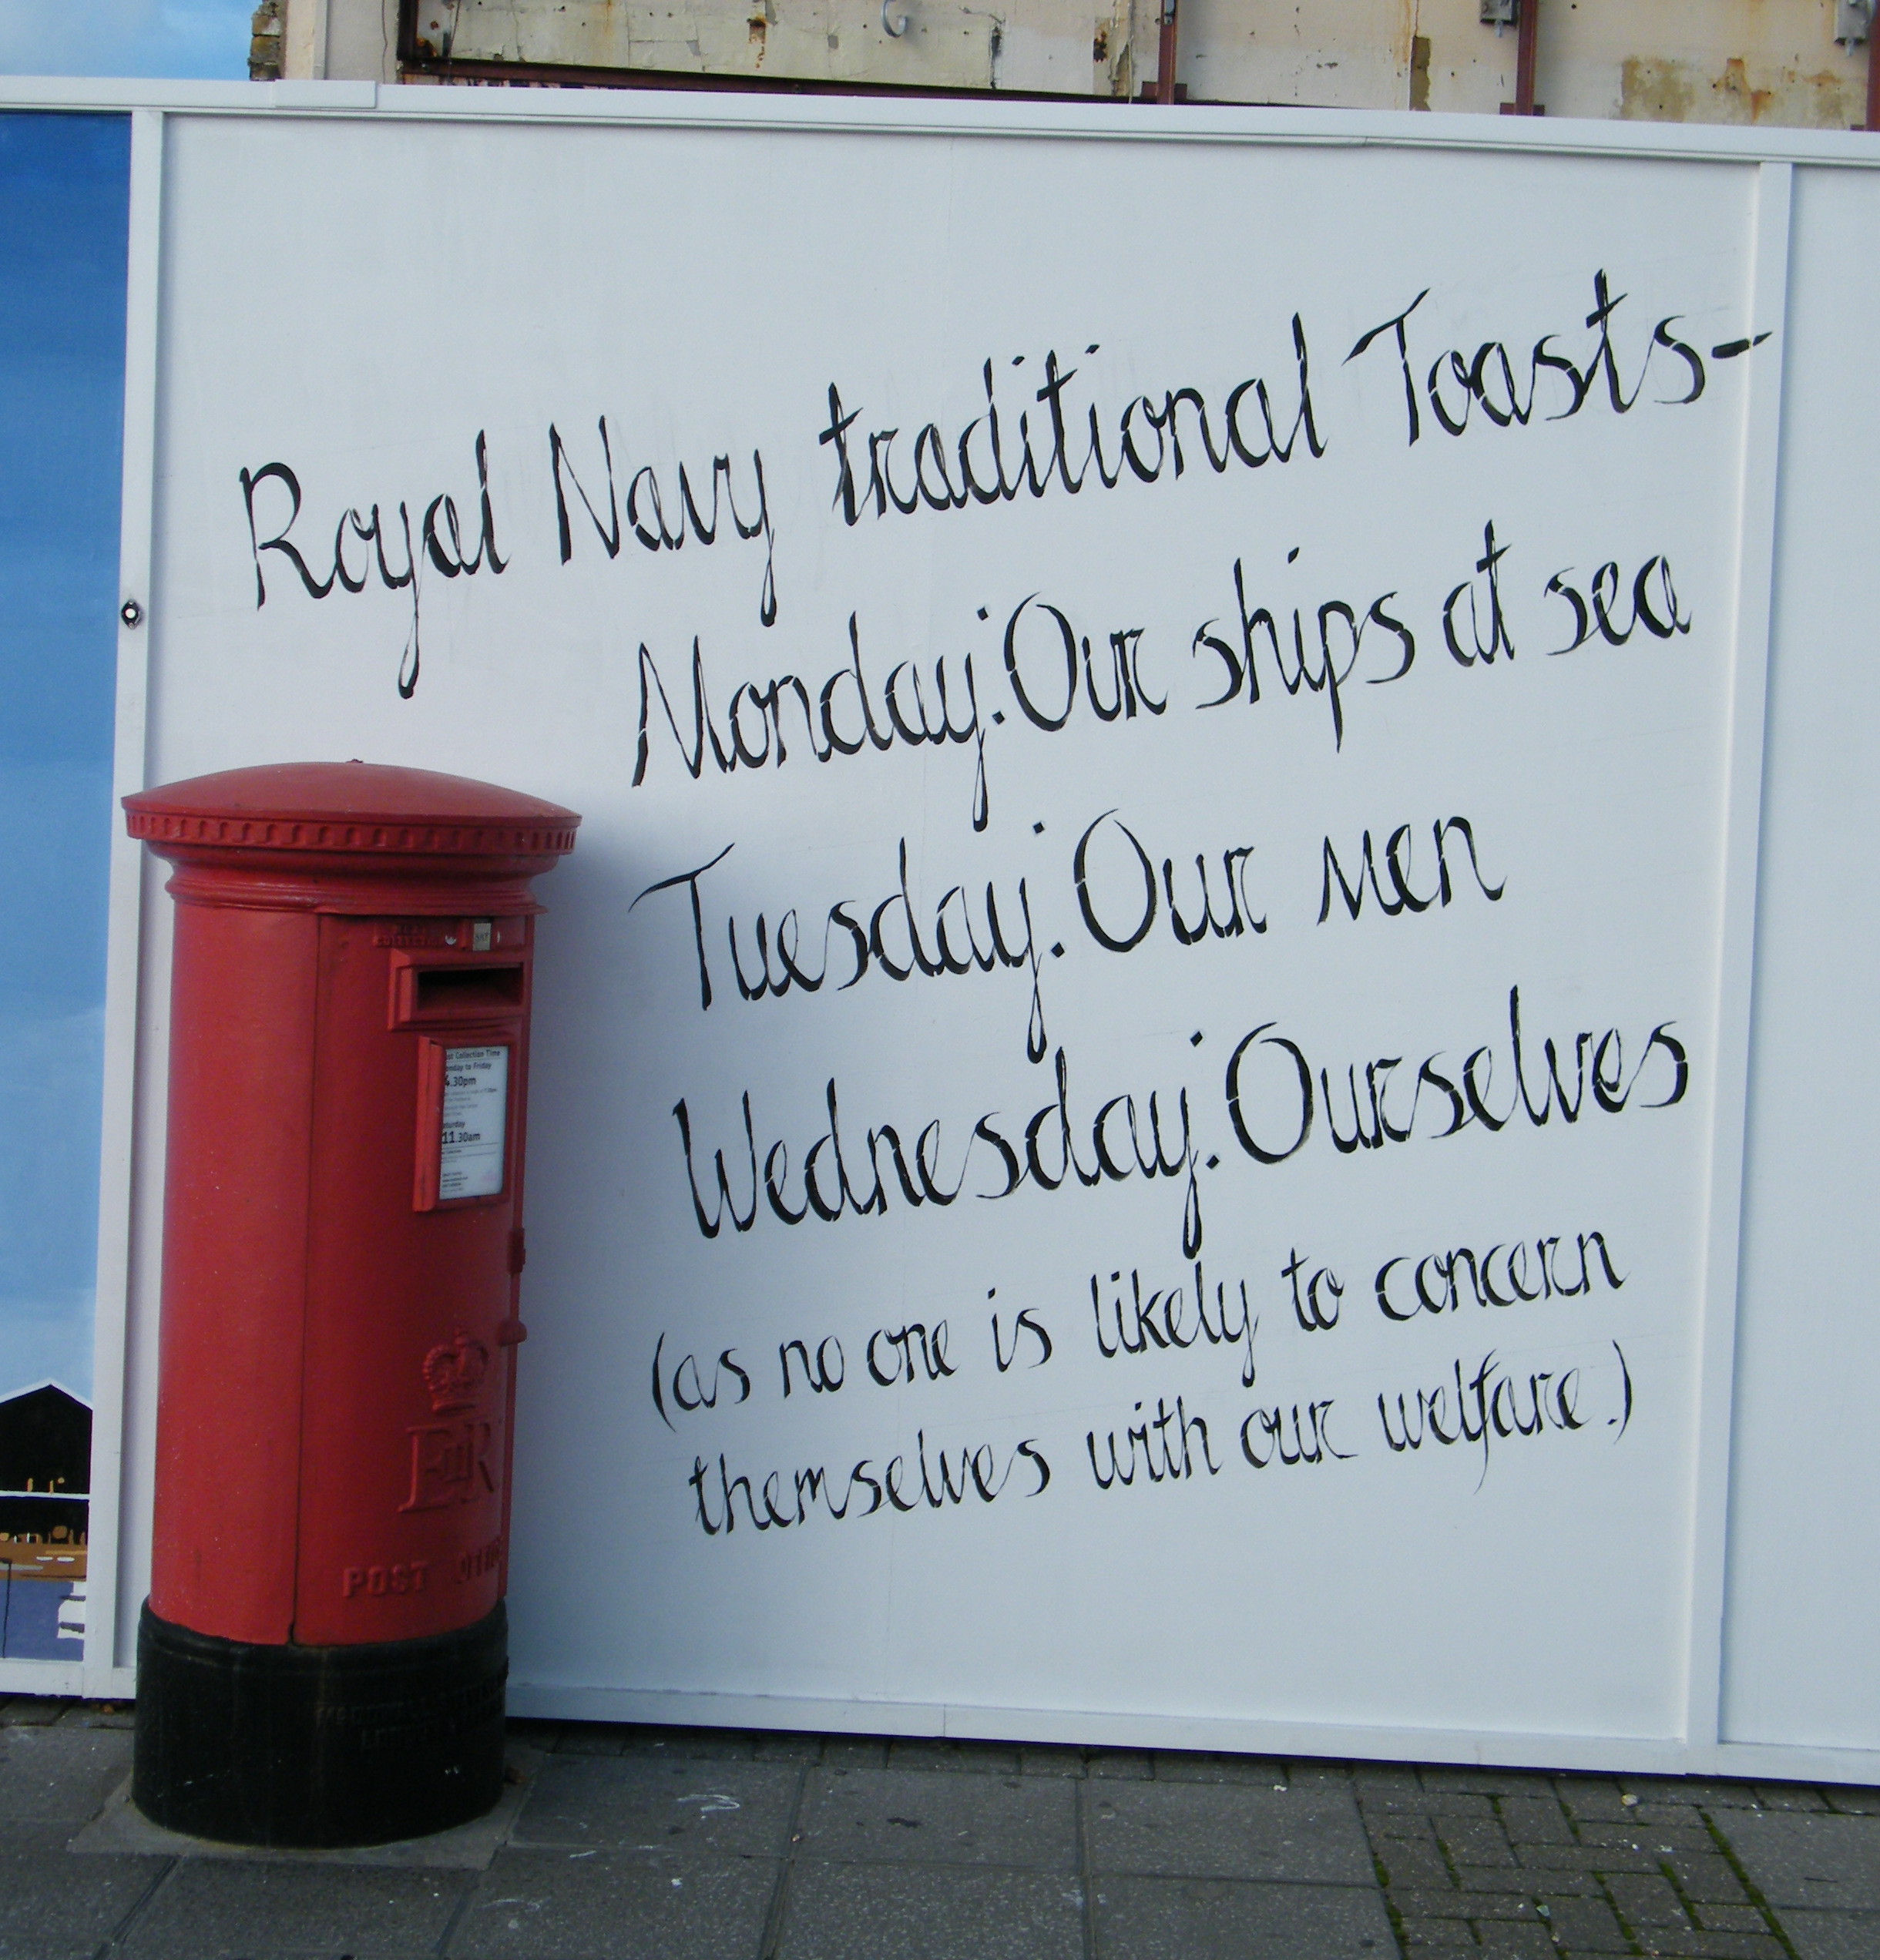 Royal Navy traditional Toasts-
Monday: Our ships at sea
Tuesday: Our men
Wednesday: Ourselves
(as no one is likely to concern
themselves with our welfare.)
Collection Time
to Friday
.30pm
11.30am
E II R
POST OFFICE